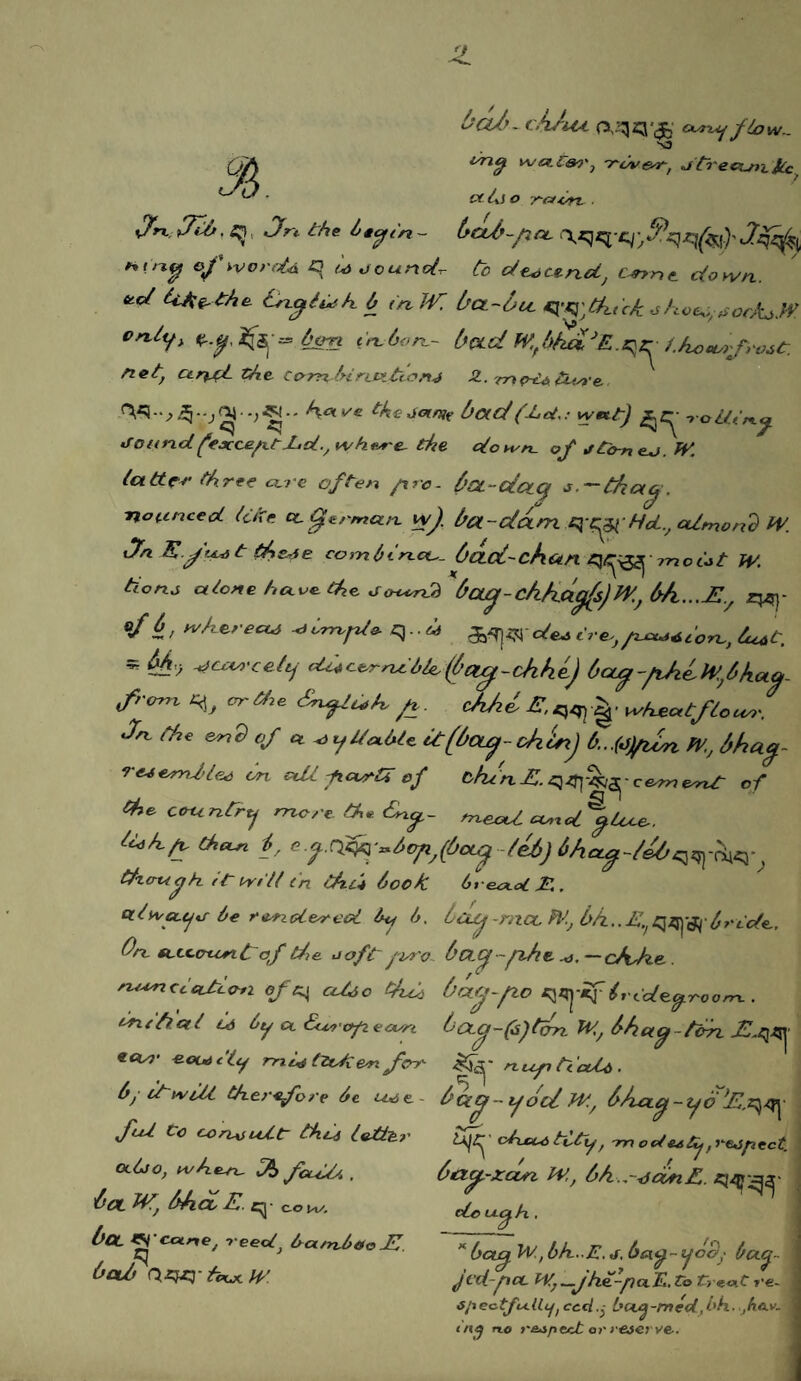 2.
B.
In Tib. བ, In the begin-
ning of words བ is sound-
ed like the English b in W.
only, e.g. = bon in bon-
net, and the combinations
have the same
sound (except Ld., where the
latter three are often pro-
nounced like a German w).
In E. just these combina-
tions alone have the sound
of b, whereas simple བ.. is
= bh, scarcely discernible
from or the English p.
In the end of a syllable it
resembles in all parts of
the country more the Eng-
lish p than b, e.g. = bop,
though it will in this book
always be rendered by b.
On account of the soft pro-
nunciation of also this
initial is by a European
ear easily mistaken for
b, it will therefore be use-
ful to consult this letter
also, when B fails.
ba W., bha E. བ་ cow.
ba cane, reed, bamboo E.
bab འབབ་ tax W.
bab-chhu འབབ་ཆུ any flow-
ing water, river, stream &c,
also rain.
bab-pa འབབ་པ་,
to descend, come down.
ba-bu thick shoes, socks W.
bad W., bhad E. བད་ 1. hoarfrost.
2. moisture.
bad (Ld.: wat) རྦད་ rolling
down of stones. W.
ba-dag s. — thag.
ba-dam Hd., almond W.
bad-chan moist W.
*bag-chhag(s) W., bh...E.,
desire, passion, lust,
(bag-chhe) bag-phe W., bhag-
chhe E, wheat flour.
(bag-chin) b..(s)pun W., bhag-
chin E. cement of
meal and glue.
(bag-leb) bhag-leb བག་ལེབ་,
bread E.
bag-ma W., bh.. E., བག་མ་ bride.
bag-phe s. — chhe.
bag-po བག་པོ་ bridegroom.
bag-(s)ton W., bhag-ton E. བག་
སྟོན་ nuptials.
bag-yod W., bhag-yod E. བག་
ཡོད་ chastity, modesty, respect.
bag-xan W., bh..-san E.
dough.
*bag W., bh..E. s. bag-yod; bag-
jed-pa W., —jhe-pa E. to treat re-
spectfully, ccd.; bag-med, bh.., hav-
ing no respect or reserve.